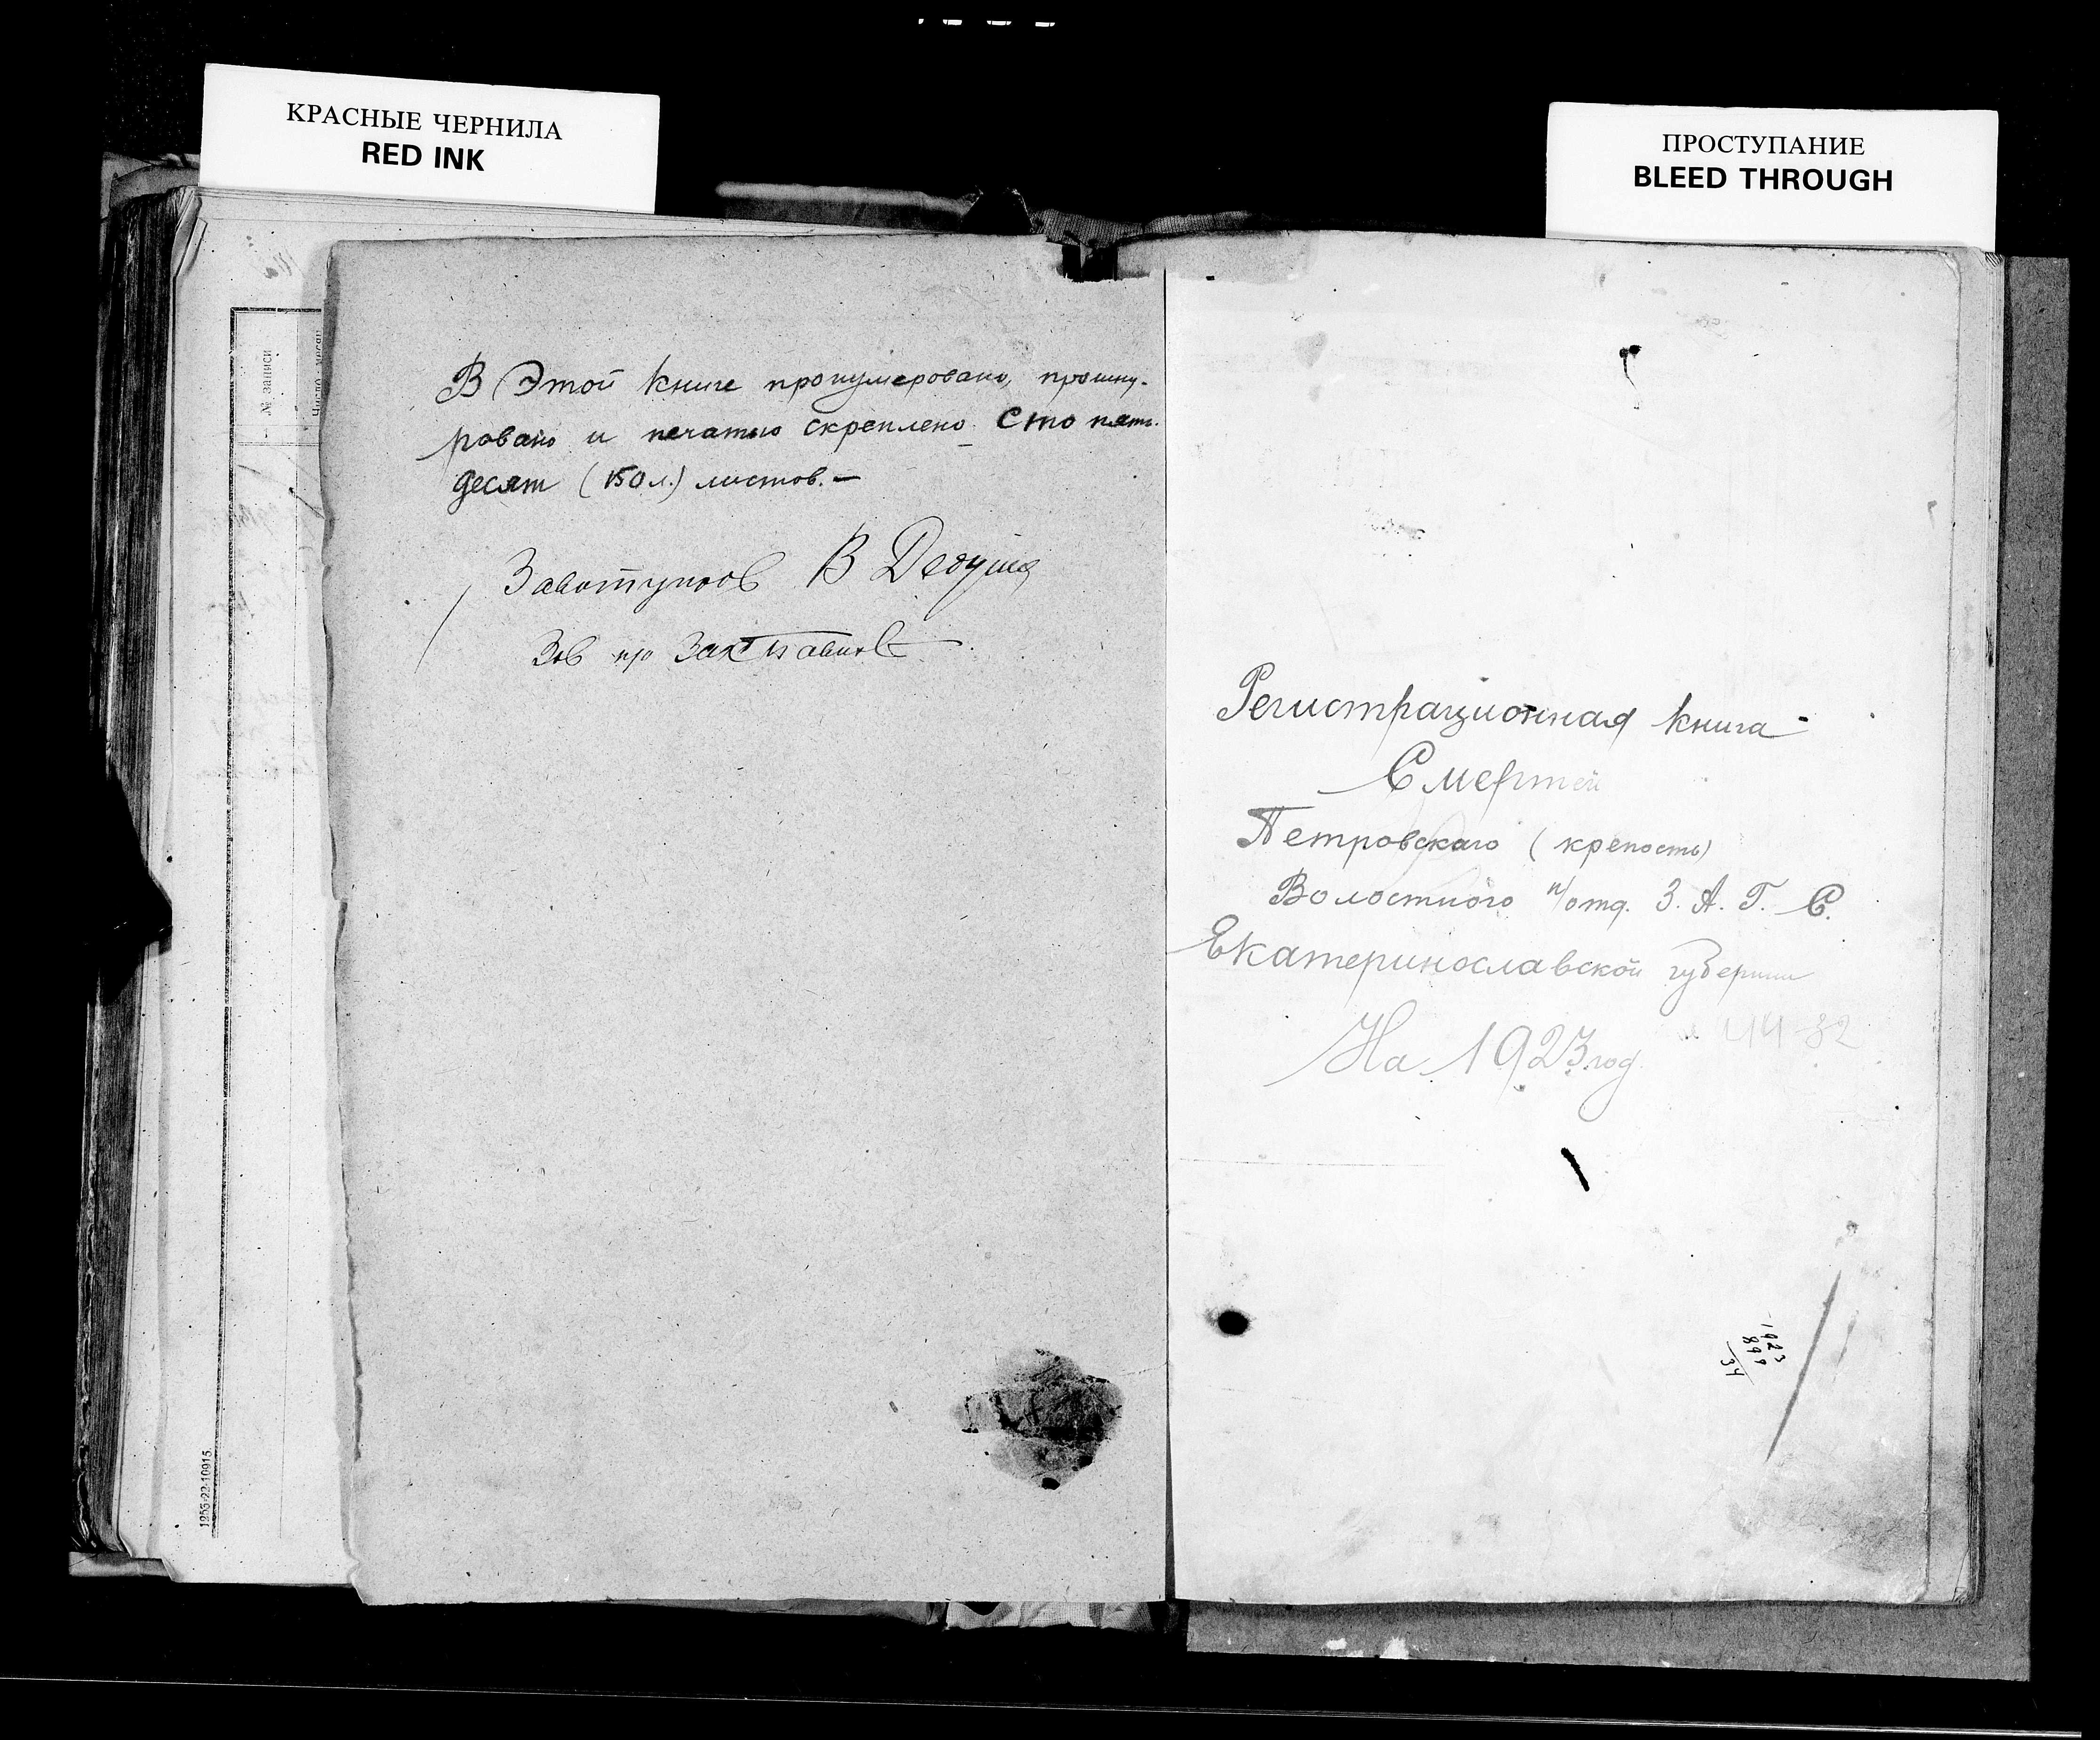 КРАСНЫЕ ЧЕРНИЛА
RED INK
ПРОСТУПАНИЕ
BLEED THROUGH
№ записи
1253-22-10915
В Этой книге пронумеровано, прошну-
ровано и печатью скреплено Сто пять-
десят (150 л.) листов.—
В
Зав
Регистрационная книга
Смертей
Петровского (крепость)
Волостного п/отд. З. А. Г. С.
Екатеринославской губернии
На 1923 год
1923
899
34